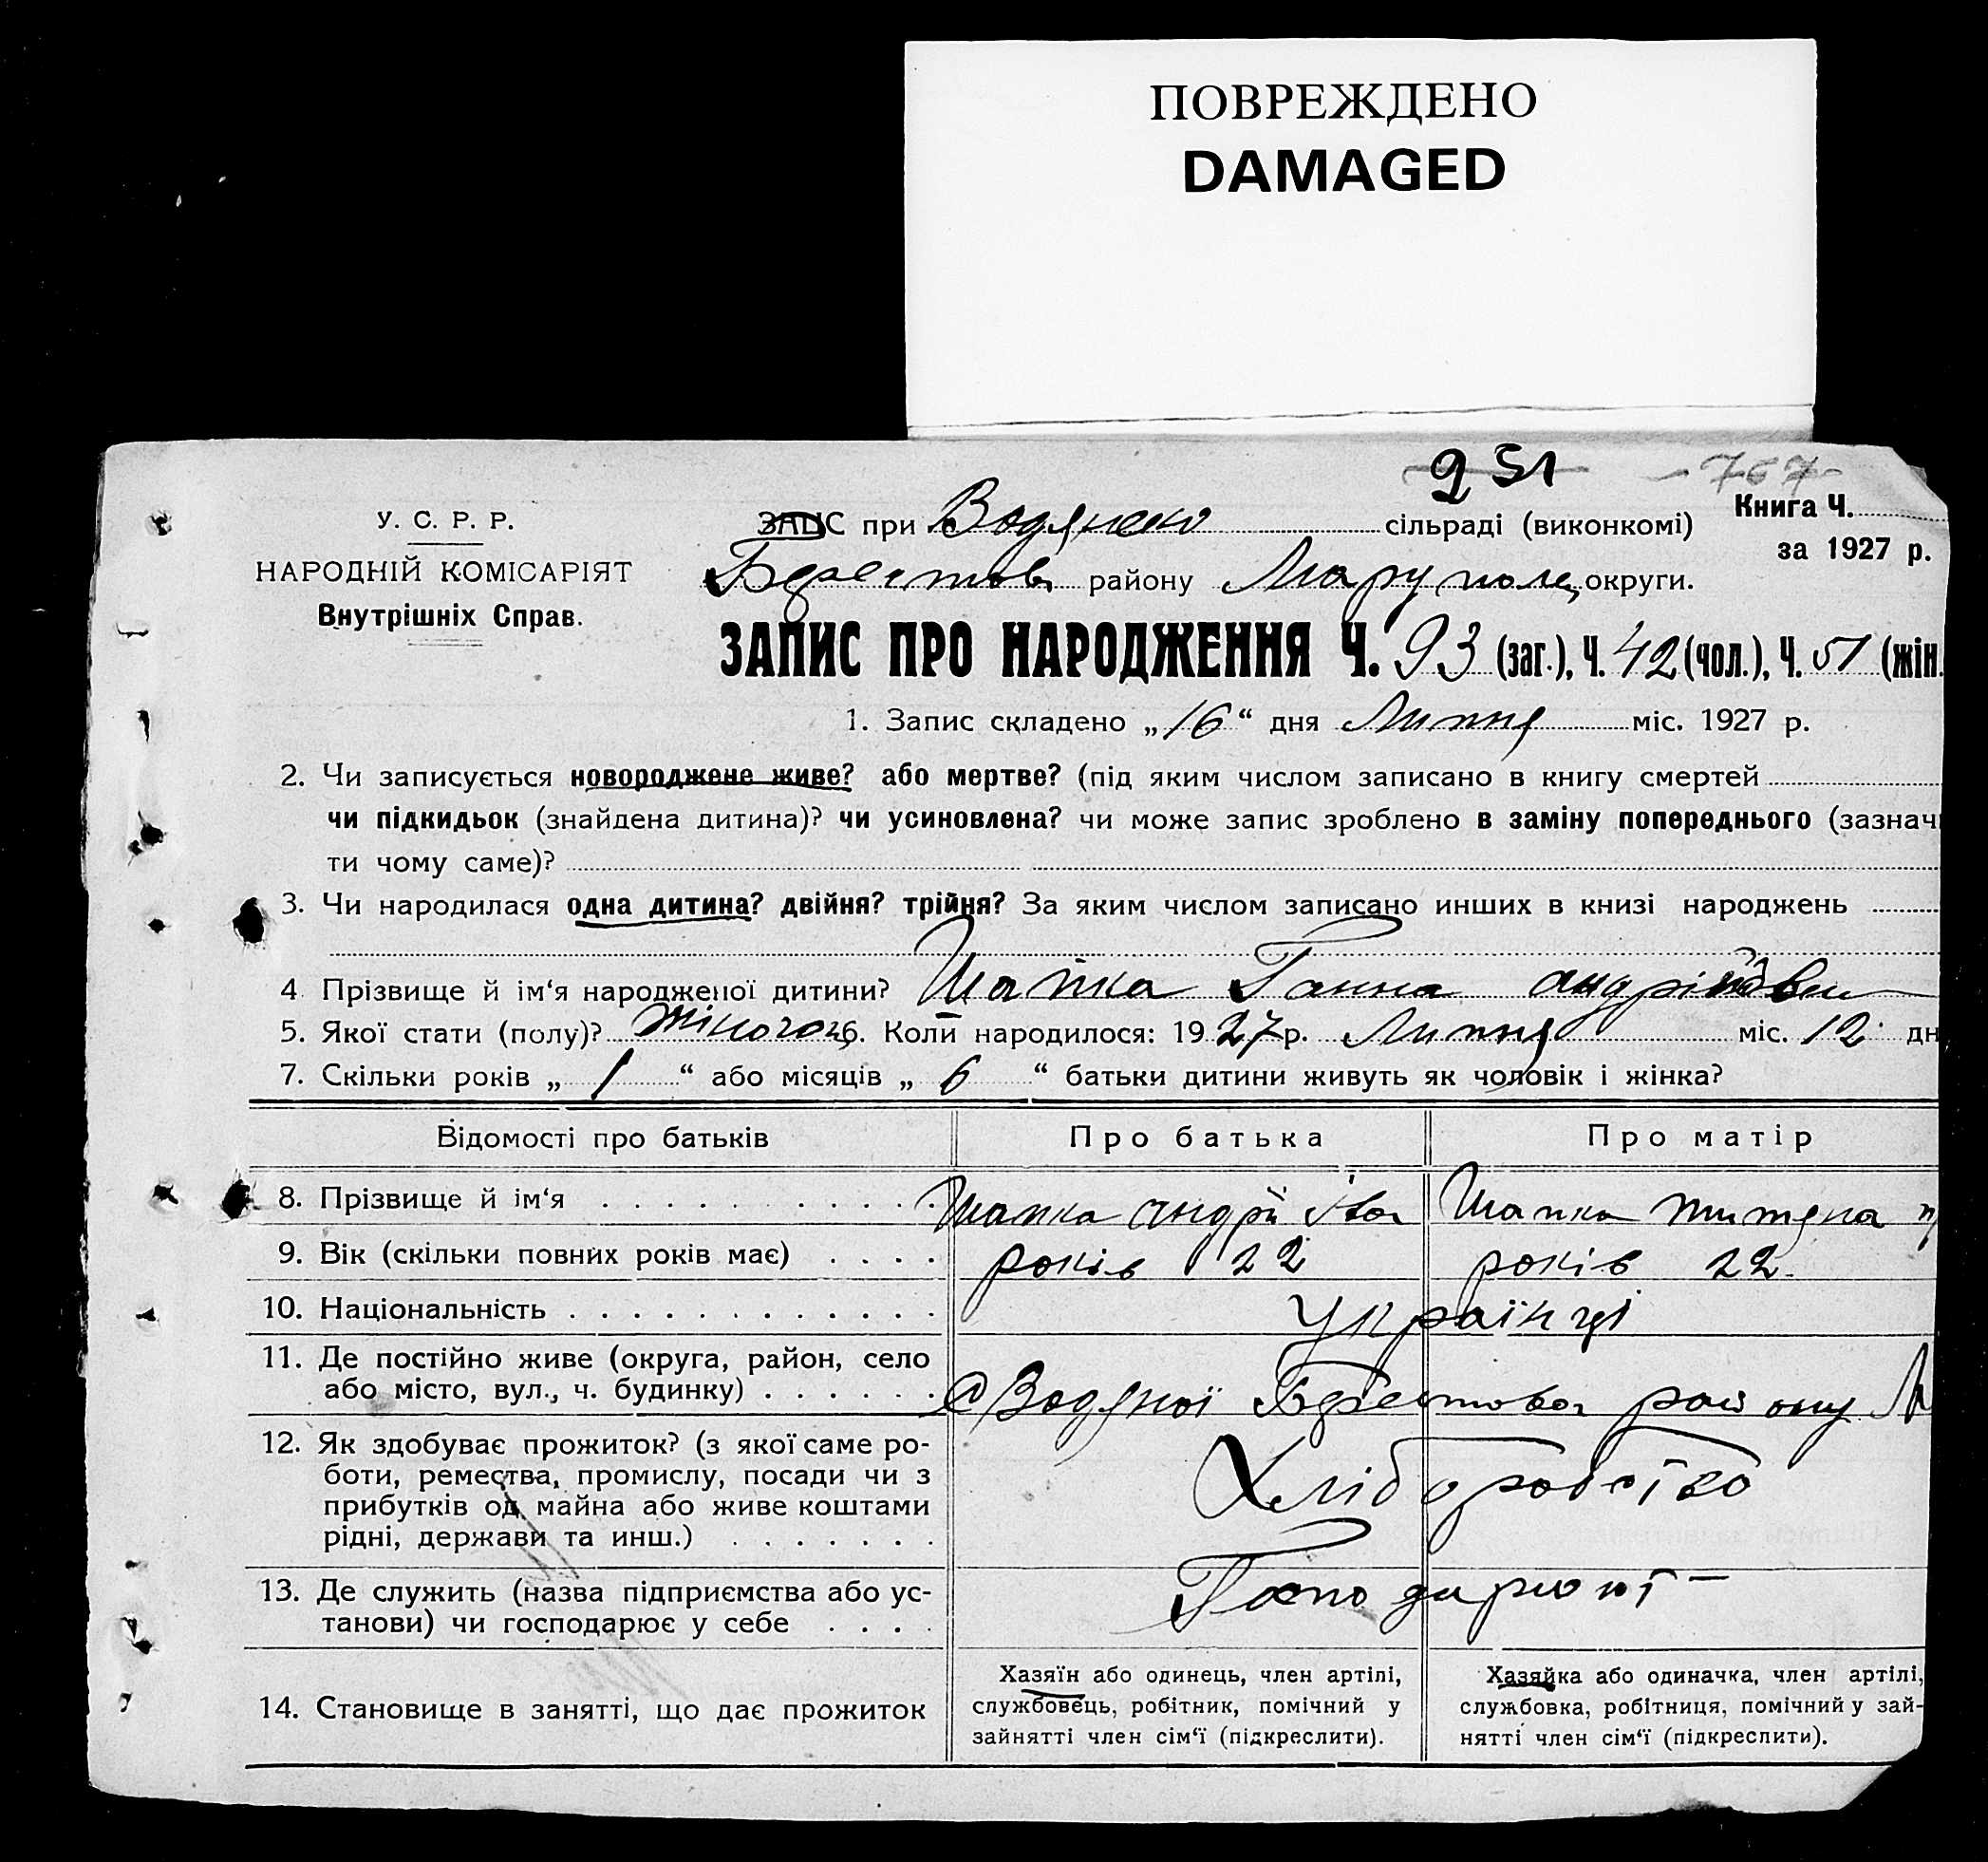 ПОВРЕЖДЕНО
DAMAGED
251
-767-
Книга Ч.
за 1927 р.
У. С. Р. Р.
НАРОДНІЙ КОМІСАРІЯТ
Внутрішніх Справ.
ЗАПИС при Водянско сільраді (виконкомі)
Берестов району Маруполц округи.
ЗАПИС ПРО НАРОДЖЕННЯ Ч. 93 (заг.), Ч. 42 (чол.), Ч. 51 (жін.
1. Запис складено „16“ дня Липня міс. 1927 р.
2. Чи записується новороджене живе? або мертве? (під яким числом записано в книгу смертей
чи підкидьок (знайдена дитина)? чи усиновлена? чи може запис зроблено в заміну попереднього (зазнач
ти чому саме)?
3. Чи народилася одна дитина? двійня? трійня? За яким числом записано инших в книзі народжень
4 Прізвище й ім‘я народженої дитини? Шапка Ганна Андріївна
5. Якої стати (полу)? Жіночої 6. Коли народилося: 1927 р. Липня міс. 12 дн
7. Скільки років „1“ або місяців „6“ батьки дитини живуть як чоловік і жінка?
Відомості про батьків Про батька Про матір
8. Прізвище й ім‘я Шапка Андрій Іва Шапка Титяна
9. Вік (скільки повних років має) років 22 років 22
10. Національність Українці
11. Де постійно живе (округа, район, село
або місто, вул., ч. будинку) с Водяної Берестовог району М
12. Як здобуває прожиток? (з якої саме ро-
боти, ремества, промислу, посади чи з
прибутків од майна або живе коштами
рідні, держави та инш.) Хліборобство
13. Де служить (назва підприємства або ус-
танови) чи господарює у себе Господарюют
14. Становище в занятті, що дає прожиток
Хазяїн або одинець, член артілі,
службовець, робітник, помічний у
зайнятті член сім‘ї (підкреслити).
Хазяйка або одиначка, член артілі,
службовка, робітниця, помічний у зай-
нятті член сім‘ї (підкреслити).